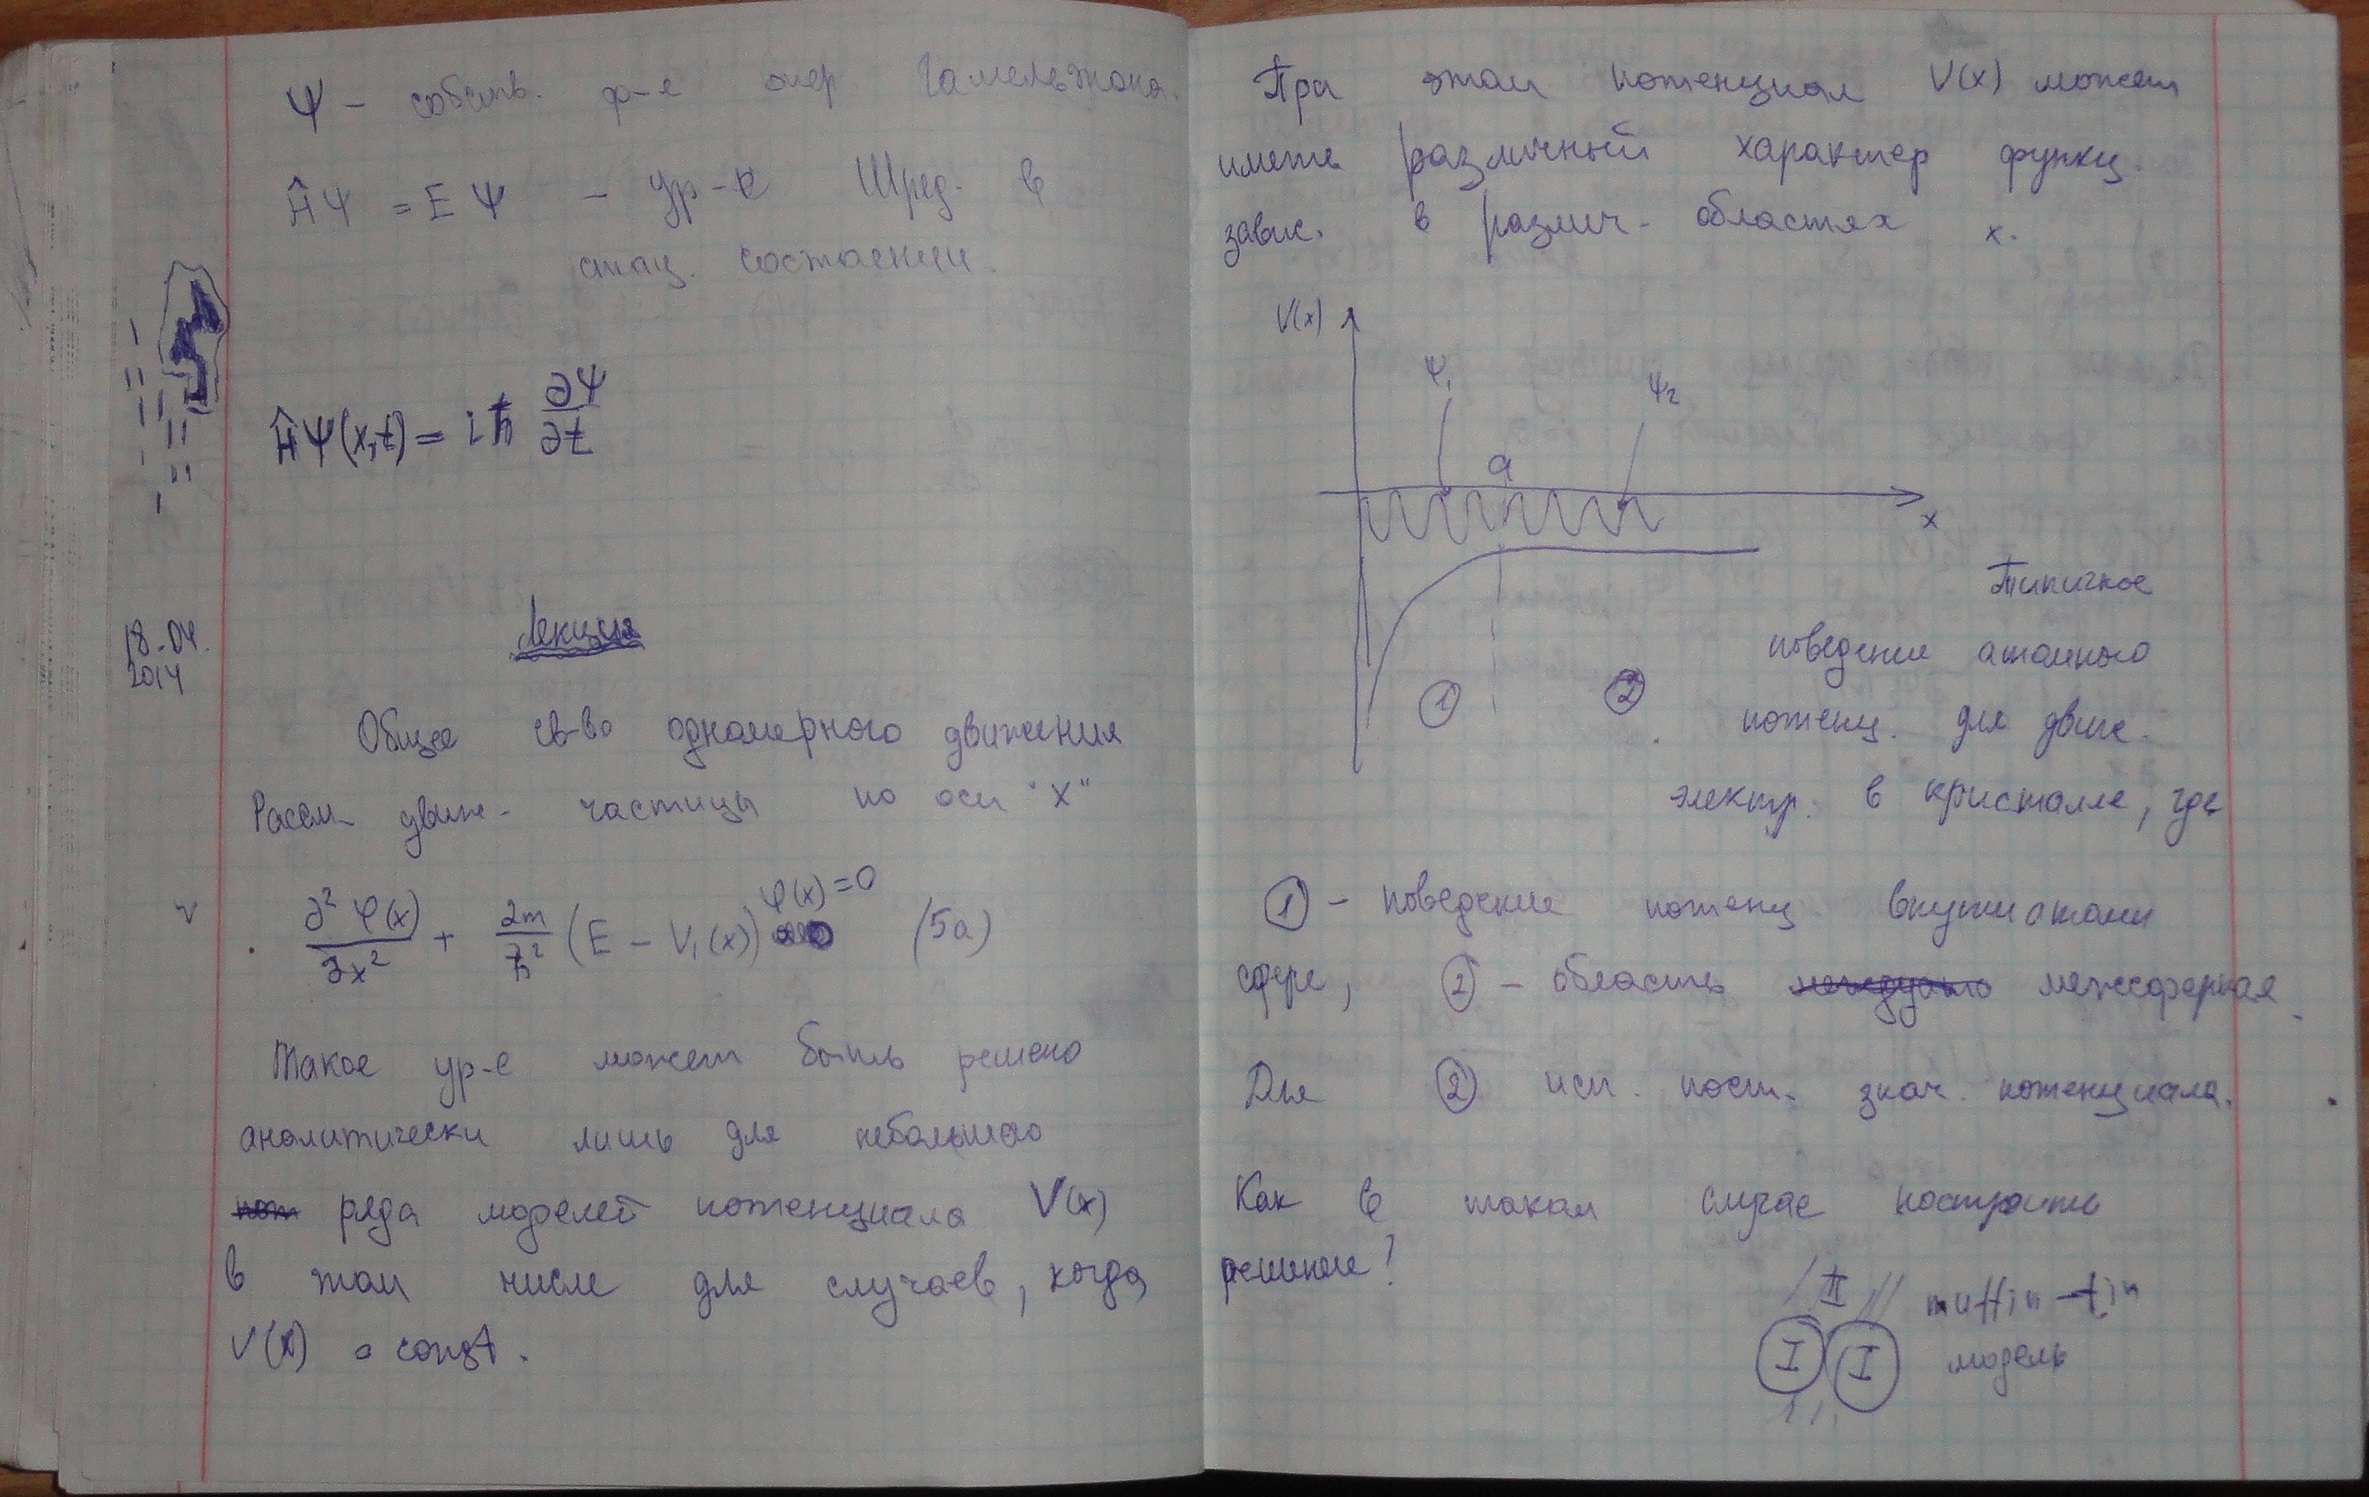 Ψ – собств. ф-я опер Гамельтона.
ĤΨ = EΨ – ур-е Шред. в
стац. состоянии.
ĤΨ(x,t) = iħ ∂Ψ/∂t
18.04.
2014
Лекция
Общее св-во одномерного движения
Рассм. движ. частицы по оси "X"
∂²φ(x)/∂x² + 2m/ħ² (E – V₁(x)) φ(x)=0 (5а)
Такое ур-е может быть решено
аналитически лишь для небольшого
ряда моделей потенциала V(x)
в том числе для случаев, когда
V(x) = const.
При этом потенциал V(x) может
иметь различный характер функц.
завис. в различ. областях x.
V(x)
φ₁
φ₂
a
x
Типичное
поведение атомного
① ② потенц. для движ.
электр. в кристалле, где
① – поведение потенц внутриатомн
сфере, ② – область межсферная.
Для ② исп. пост. знач. потенциала.
Как в таком случае построить
решение?
II muffin-tin
I I модель